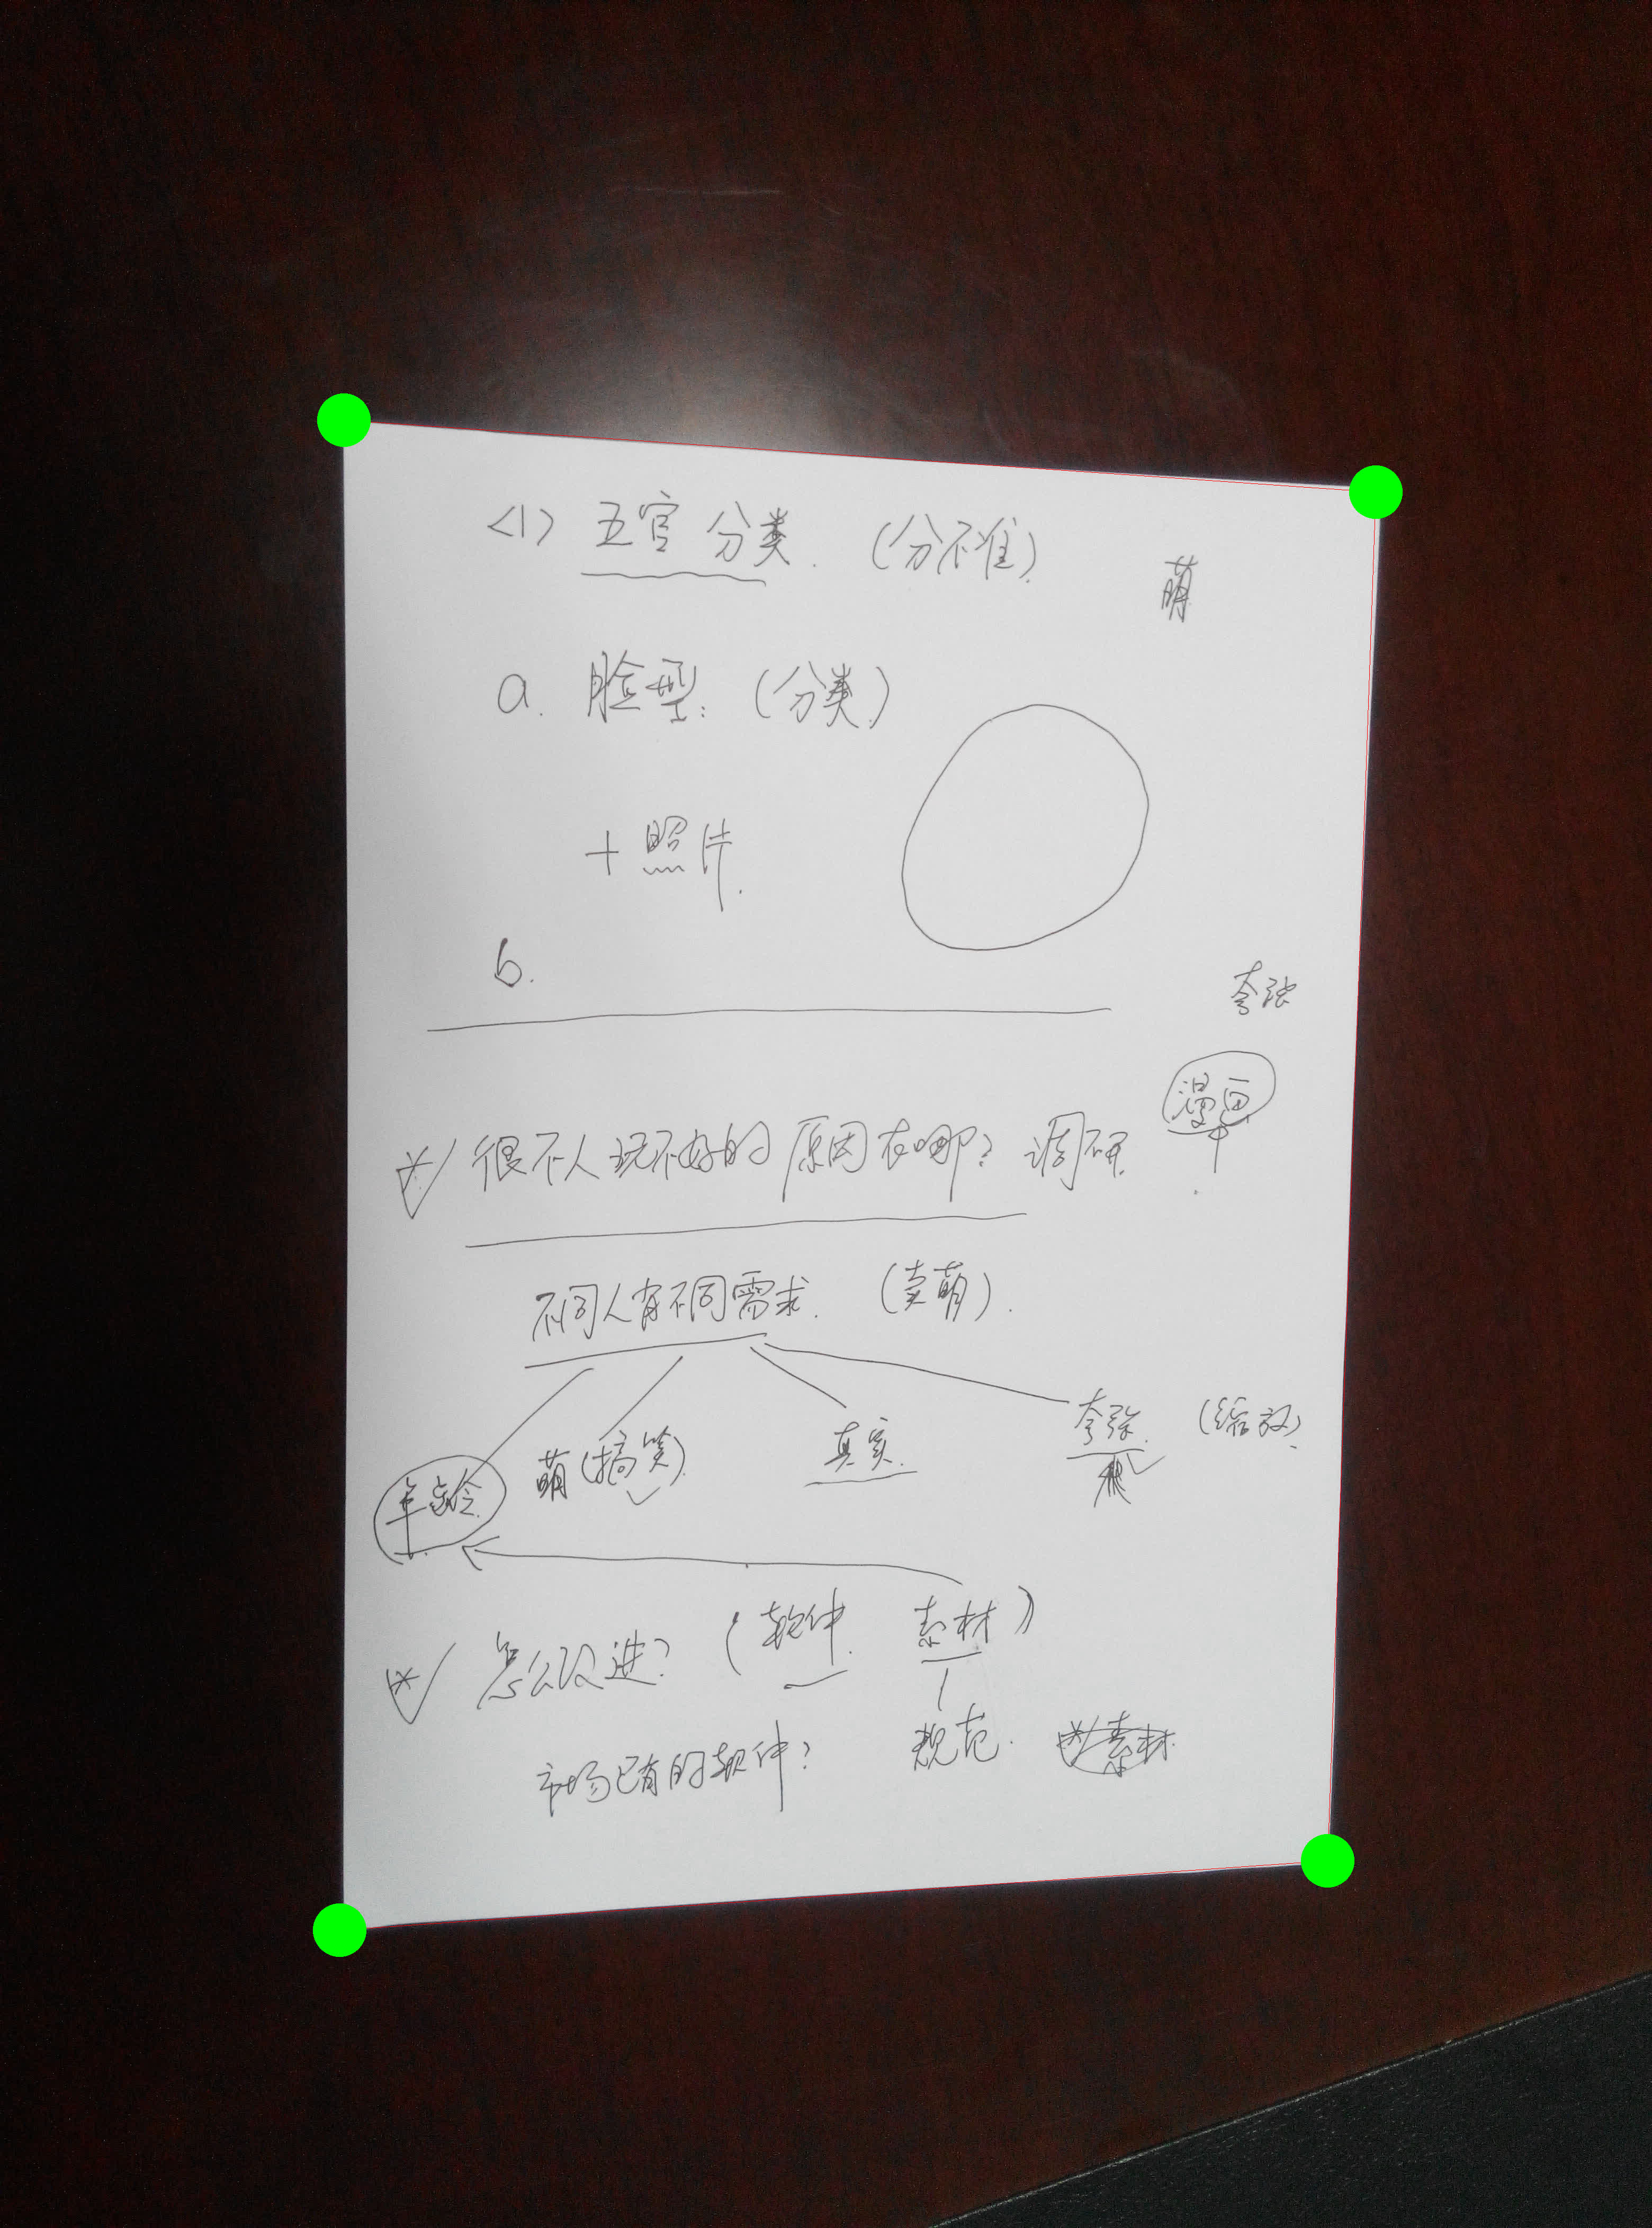 <1> 五官分类. (分不准)
萌
a. 脸型: (分类)
+ 照片.
b.
夸张
漫画
很不人玩不好的原因在哪? 调研
不同人有不同需求. (卖萌).
年龄 萌(搞笑) 真实. 夸张. (缩放)
怎么改进? (软件. 素材)
市场已有的软件? 规范. 素材